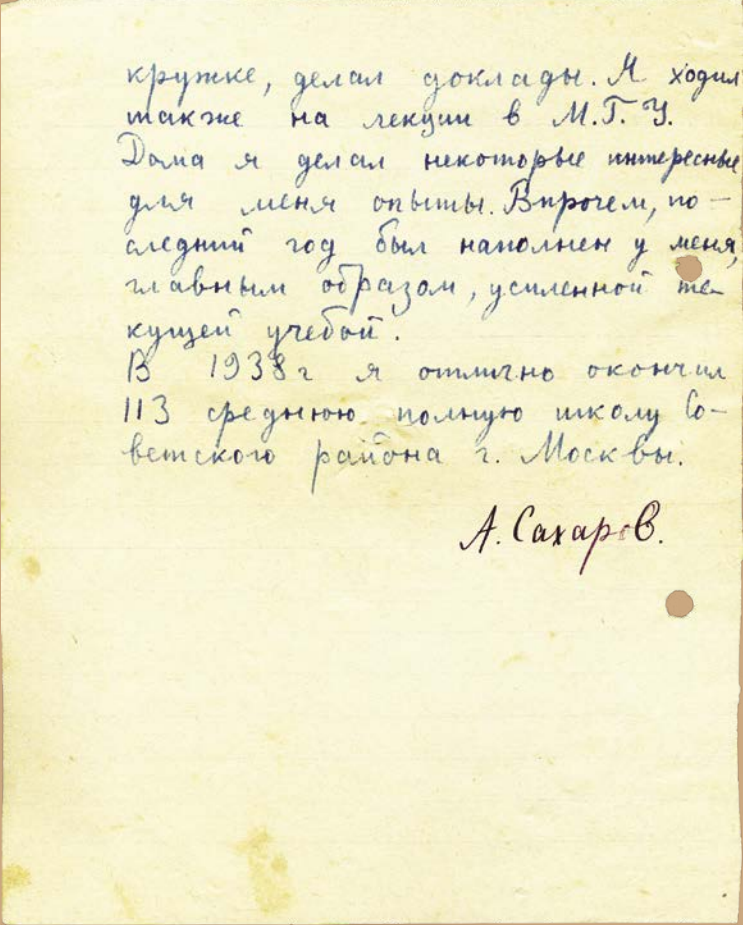 кружке, делал доклады. Я ходил
также на лекции в М.Г.У.
Дома я делал некоторые интересные
для меня опыты. Впрочем, по-
следний год был наполнен у меня,
главным образом, усиленной те-
кущей учебой.
В 1938г я отлично окончил
113 среднюю полную школу Со-
ветского района г. Москвы.
А. Сахаров.